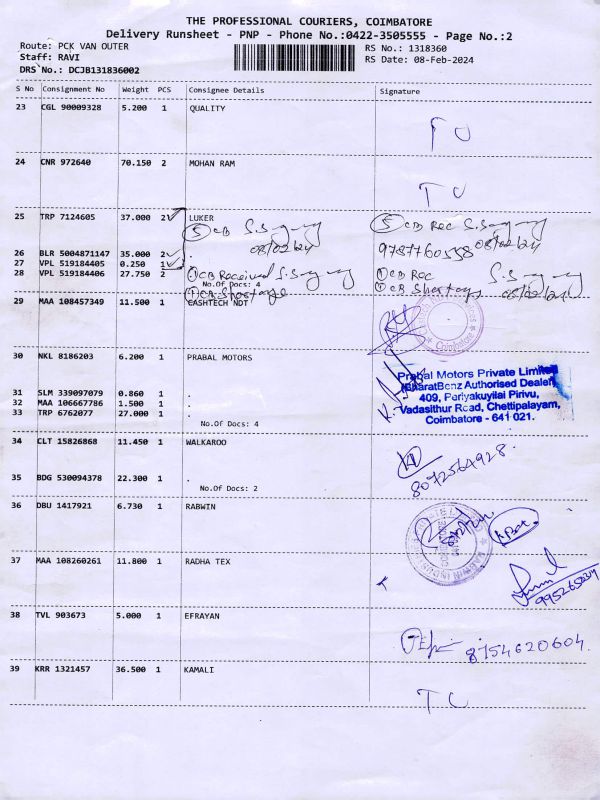 THE PROFESSIONAL COURIERS, COIMBATORE
Delivery Runsheet - PNP - Phone No.:0422-3505555 - Page No.:2
Route: PCK VAN OUTER RS No.: 1318360
Staff: RAVI RS Date: 08-Feb-2024
DRS No.: DCJB131836002
S No Consignment No Weight PCS Consignee Details Signature
23 CGL 90009328 5.200 1 QUALITY
24 CNR 972640 70.150 2 MOHAN RAM
25 TRP 7124605 37.000 2 LUKER
5 CB 08/02/24
5 CB Rec 08/02/24
26 BLR 5004871147 35.000 2 . 9787760558
27 VPL 519184405 0.250 1 .
28 VPL 519184406 27.750 2 . 1 CB Received 1 CB Rec
No.Of Docs: 4
1 CB Shortage 1 CB Shortage 08/02/24
29 MAA 108457349 11.500 1 CASHTECH NDT
Coimbatore
30 NKL 8186203 6.200 1 PRABAL MOTORS
Prabal Motors Private Limited
(BharatBenz Authorised Dealer)
409, Periyakuyilai Pirivu,
Vadasithur Road, Chettipalayam,
Coimbatore - 641 021.
31 SLM 339097079 0.860 1 .
32 MAA 106667786 1.500 1 .
33 TRP 6762077 27.000 1 .
No.Of Docs: 4
34 CLT 15826868 11.450 1 WALKAROO
8072564928
35 BDG 530094378 22.300 1 .
No.Of Docs: 2
36 DBU 1417921 6.730 1 RABWIN
37 MAA 108260261 11.800 1 RADHA TEX
38 TVL 903673 5.000 1 EFRAYAN
8754620604
39 KRR 1321457 36.500 1 KAMALI